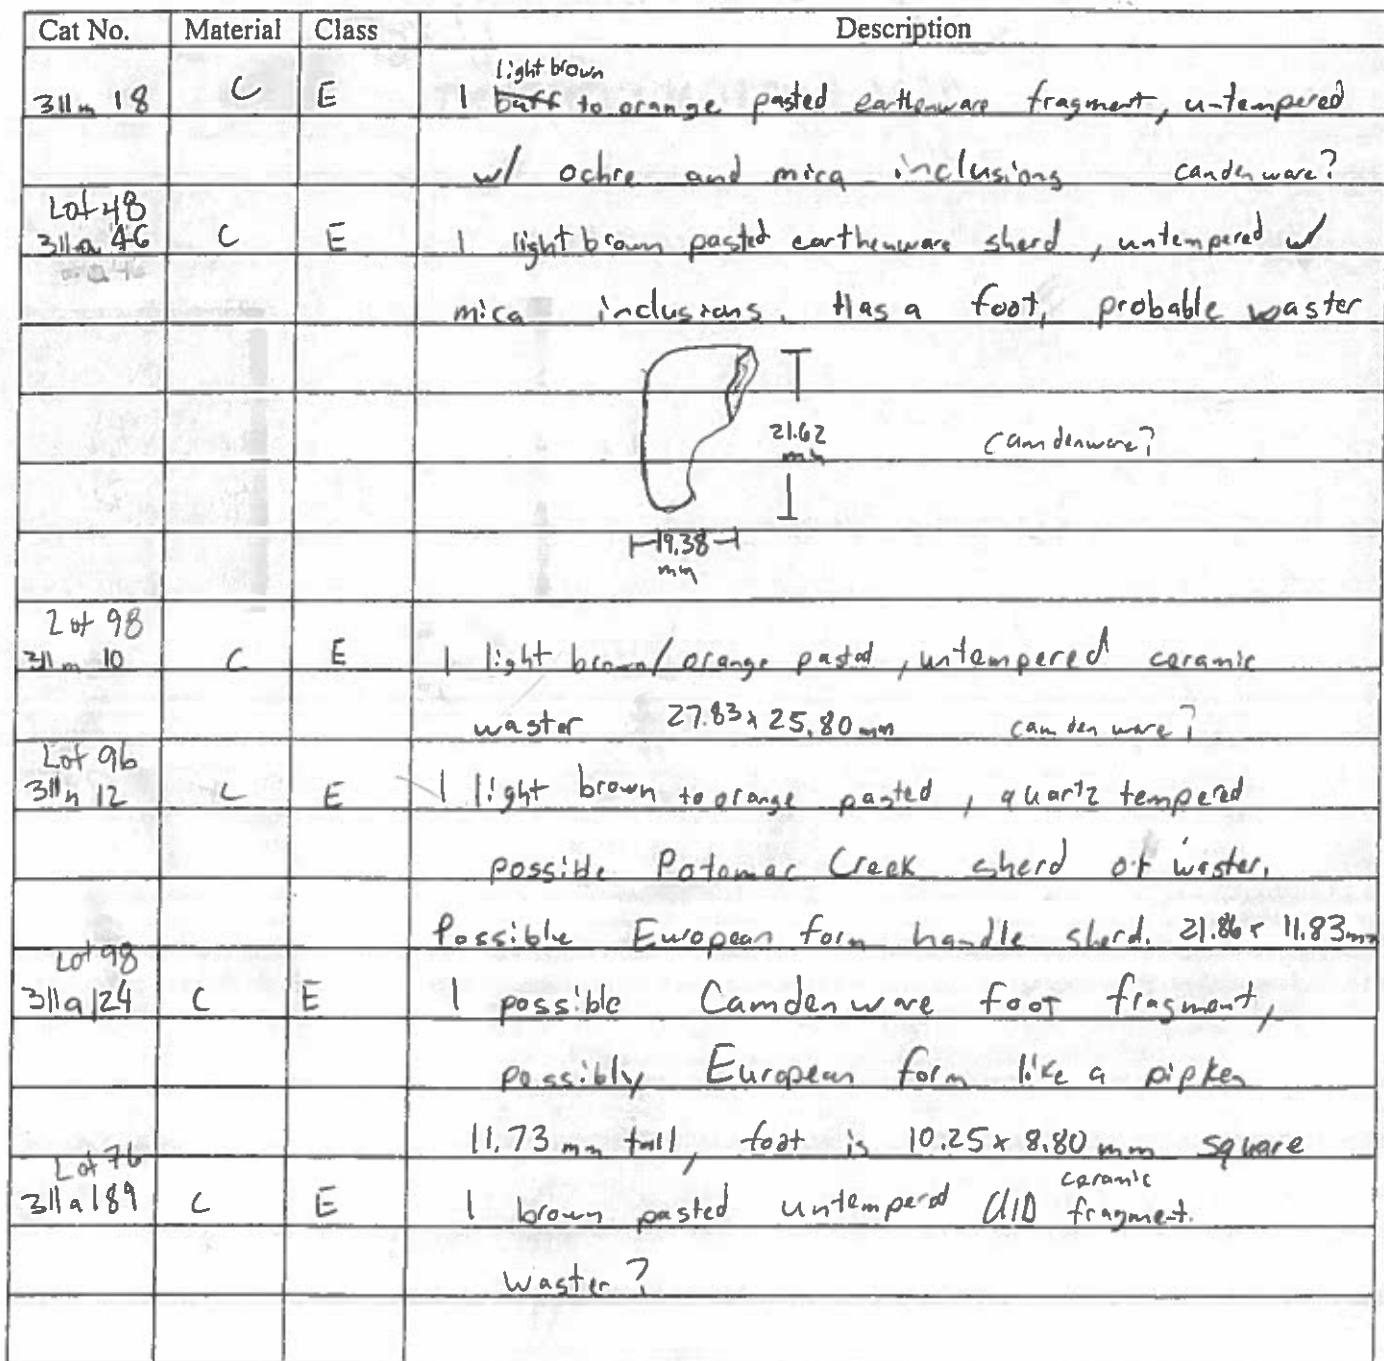 Cat No. Material Class Description
light brown
311m 18 C E 1 buff to orange pasted earthenware fragment, un-tempered
w/ ochre and mica inclusions camdenware?
Lot 48
311a 46 C E 1 light brown pasted earthenware sherd, untempered w/
mica inclusions. Has a foot, probable waster
21.62
mm
Camdenware?
19.38
mm
Lot 98
311m 10 C E 1 light brown/orange pasted, untempered ceramic
waster 27.83 x 25.80 mm camdenware?
Lot 96
311n 12 C E 1 light brown to orange pasted, quartz tempered
possible Potomac Creek sherd or waster.
Possible European form handle sherd. 21.86 x 11.83mm
Lot 98
311a/24 C E 1 possible Camdenware foot fragment,
possibly European form like a pipken
11.73 mm tall, foot is 10.25 x 8.80 mm square
Lot 76
ceramic
311a189 C E 1 brown pasted untempered UID fragment.
waster?